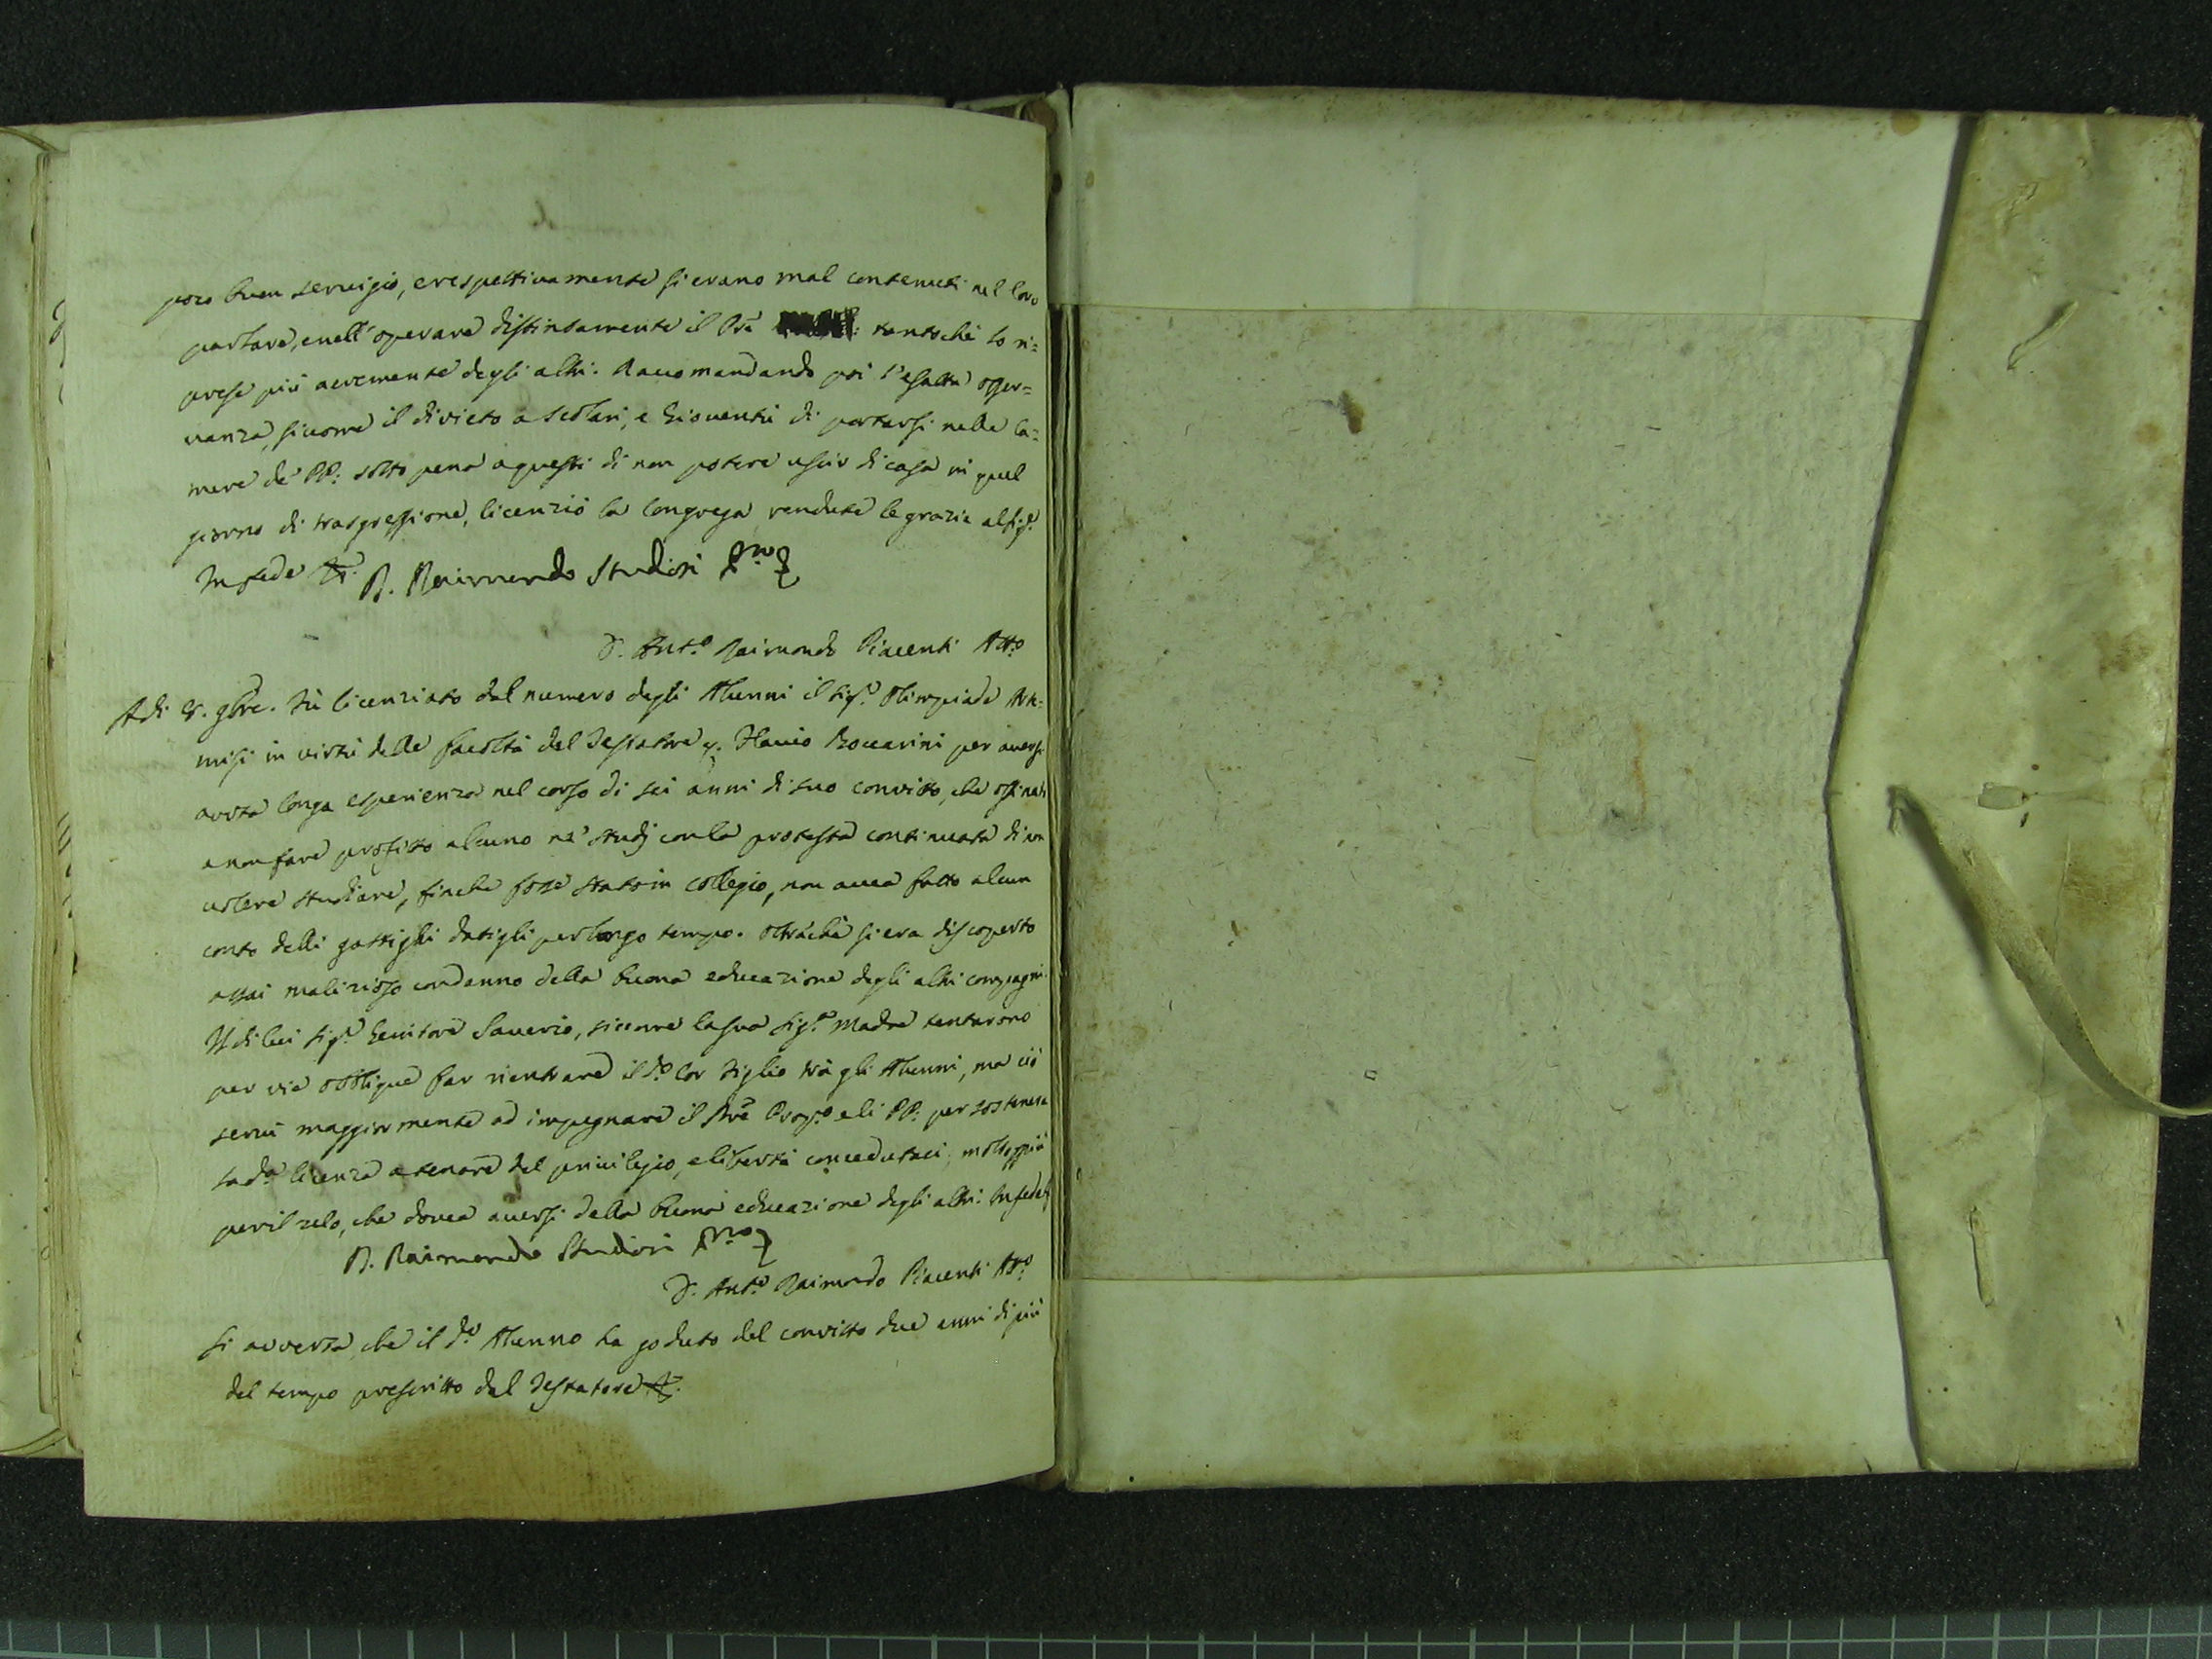 poco buon servigio, e respettivamente si erano mal contenuti nel loro
parlare, e nell'operare distintamente il Prē tantoché lo ri=
prese più acremente degli altri. Raccomandando poi l'esatta osser=
vanza, siccome il divieto a scolari, e Gioventù di portarsi nelle Ca=
mere de' PP: sotto pena a questi di non potere uscir di casa in quel
giorno di trasgressione, licenziò la Congrega rendute le grazie al Sig.e
In fede
D. Raimondo Studiosi
D. Ant.o Raimondo Piacenti Att.o
A di 9bre. Fù licenziato dal numero degli Alunni il Sig.e Olimpiade
misi in virtù delle facoltà del Testatore q. Flavio Boccarini per aversi
avuta longa esperienza nel corso di sei anni di suo convitto, che ostinato
a non fare profitto alcuno ne' studj con la protesta continuata di non
volere studiare, finche fosse stato in Collegio, non avea fatto alcun
conto delli gastighi datigli per longo tempo. Oltrache si era discoperto
assai malizioso con danno della buona educazione degli altri compagni.
Il di lui Sig.e Genitore Saverio, siccome la sua Sig.a Madre tentarono
per vie obblique far rientrare il d.o lor Figlio trà gli Alunni, ma ciò
servì maggiormente ad impegnare il Prē Prop.o e li PP. per sostenere
la d.a licenza a tenore del privilegio, e libertà concedutaci, molto più
per il zelo, che dovea aversi della buona educazione degli altri. In fede
D. Raimondo Studiosi
D. Ant.o Raimondo Piacenti Att.o
Si avverta, che il d.o Alunno ha goduto del convitto due anni di più
del tempo prescritto dal Testatore